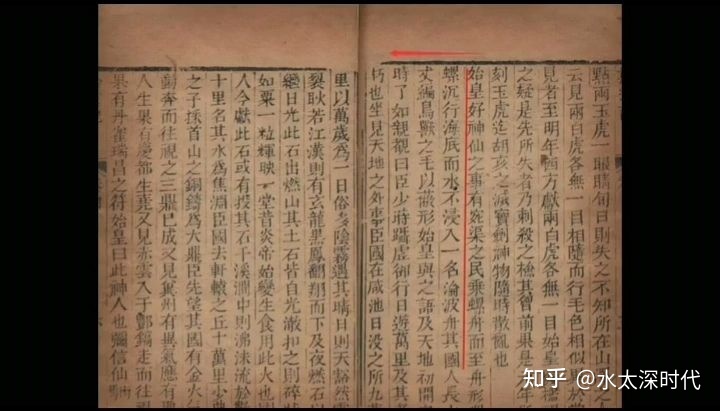 點兩玉虎一眼睛旬日則失之不知所在山
云見兩白虎各無一目相隨而行毛色相似
見者至明年西方獻兩白虎各無一目始皇
之疑是先所失者乃刺殺之檢其胷前果是
刻玉虎迄胡亥之滅寶劍神物隨時散亂也
始皇好神仙之事有宛渠之民乘螺舟而至舟形
螺沉行海底而水不浸入一名淪波舟其國人長
丈編鳥獸之毛以蔽形始皇與之語及天地初開
時了如親覩曰臣少時躡虛卻行日遊萬里及其
朽也坐見天地之外事臣國在咸池日没之所九
里以萬歲為一日俗多陰霧遇其晴日則天豁然
裂耿若江漢則有玄龍黑鳳翻翔而下及夜燃石
繼日光此石出燃山其土石皆自光澈扣之則碎
如粟一粒輝映一堂昔炎帝始變生食用此火也
人今獻此石或有投其石于溪澗中則沸沫流於
十里名其水為焦淵臣國去軒轅之丘十萬里少
之子採首山之銅鑄為大鼎臣先望其國有金火
動奔而往視之三鼎已成又見冀州有異氣應有
人生果有慶都生堯又見赤雲入于酆鎬走而往
果有丹雀瑞昌之符始皇曰此神人也彌信仙
知乎 @水太深时代